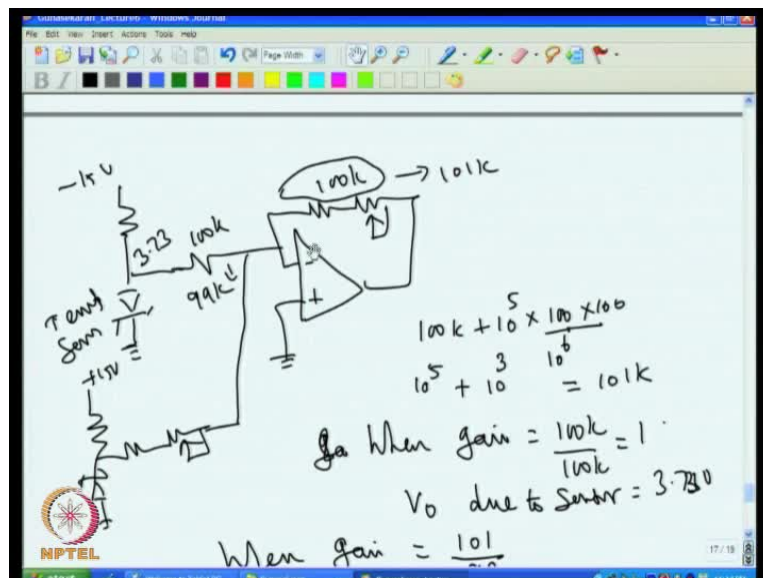 Gunasekaran_Lecture6 - Windows Journal
File Edit View Insert Actions Tools Help
Page Width
B I
-15V
100k → 101k
3.73
100k
99k
Temp
Sen
+15V
-
+
100k + 10^5 × 100 × 100 / 10^6
10^5 + 10^3 = 101k
When gain = 100k / 100k = 1
Vo due to sensor =
When gain = 101
NPTEL
17 / 19